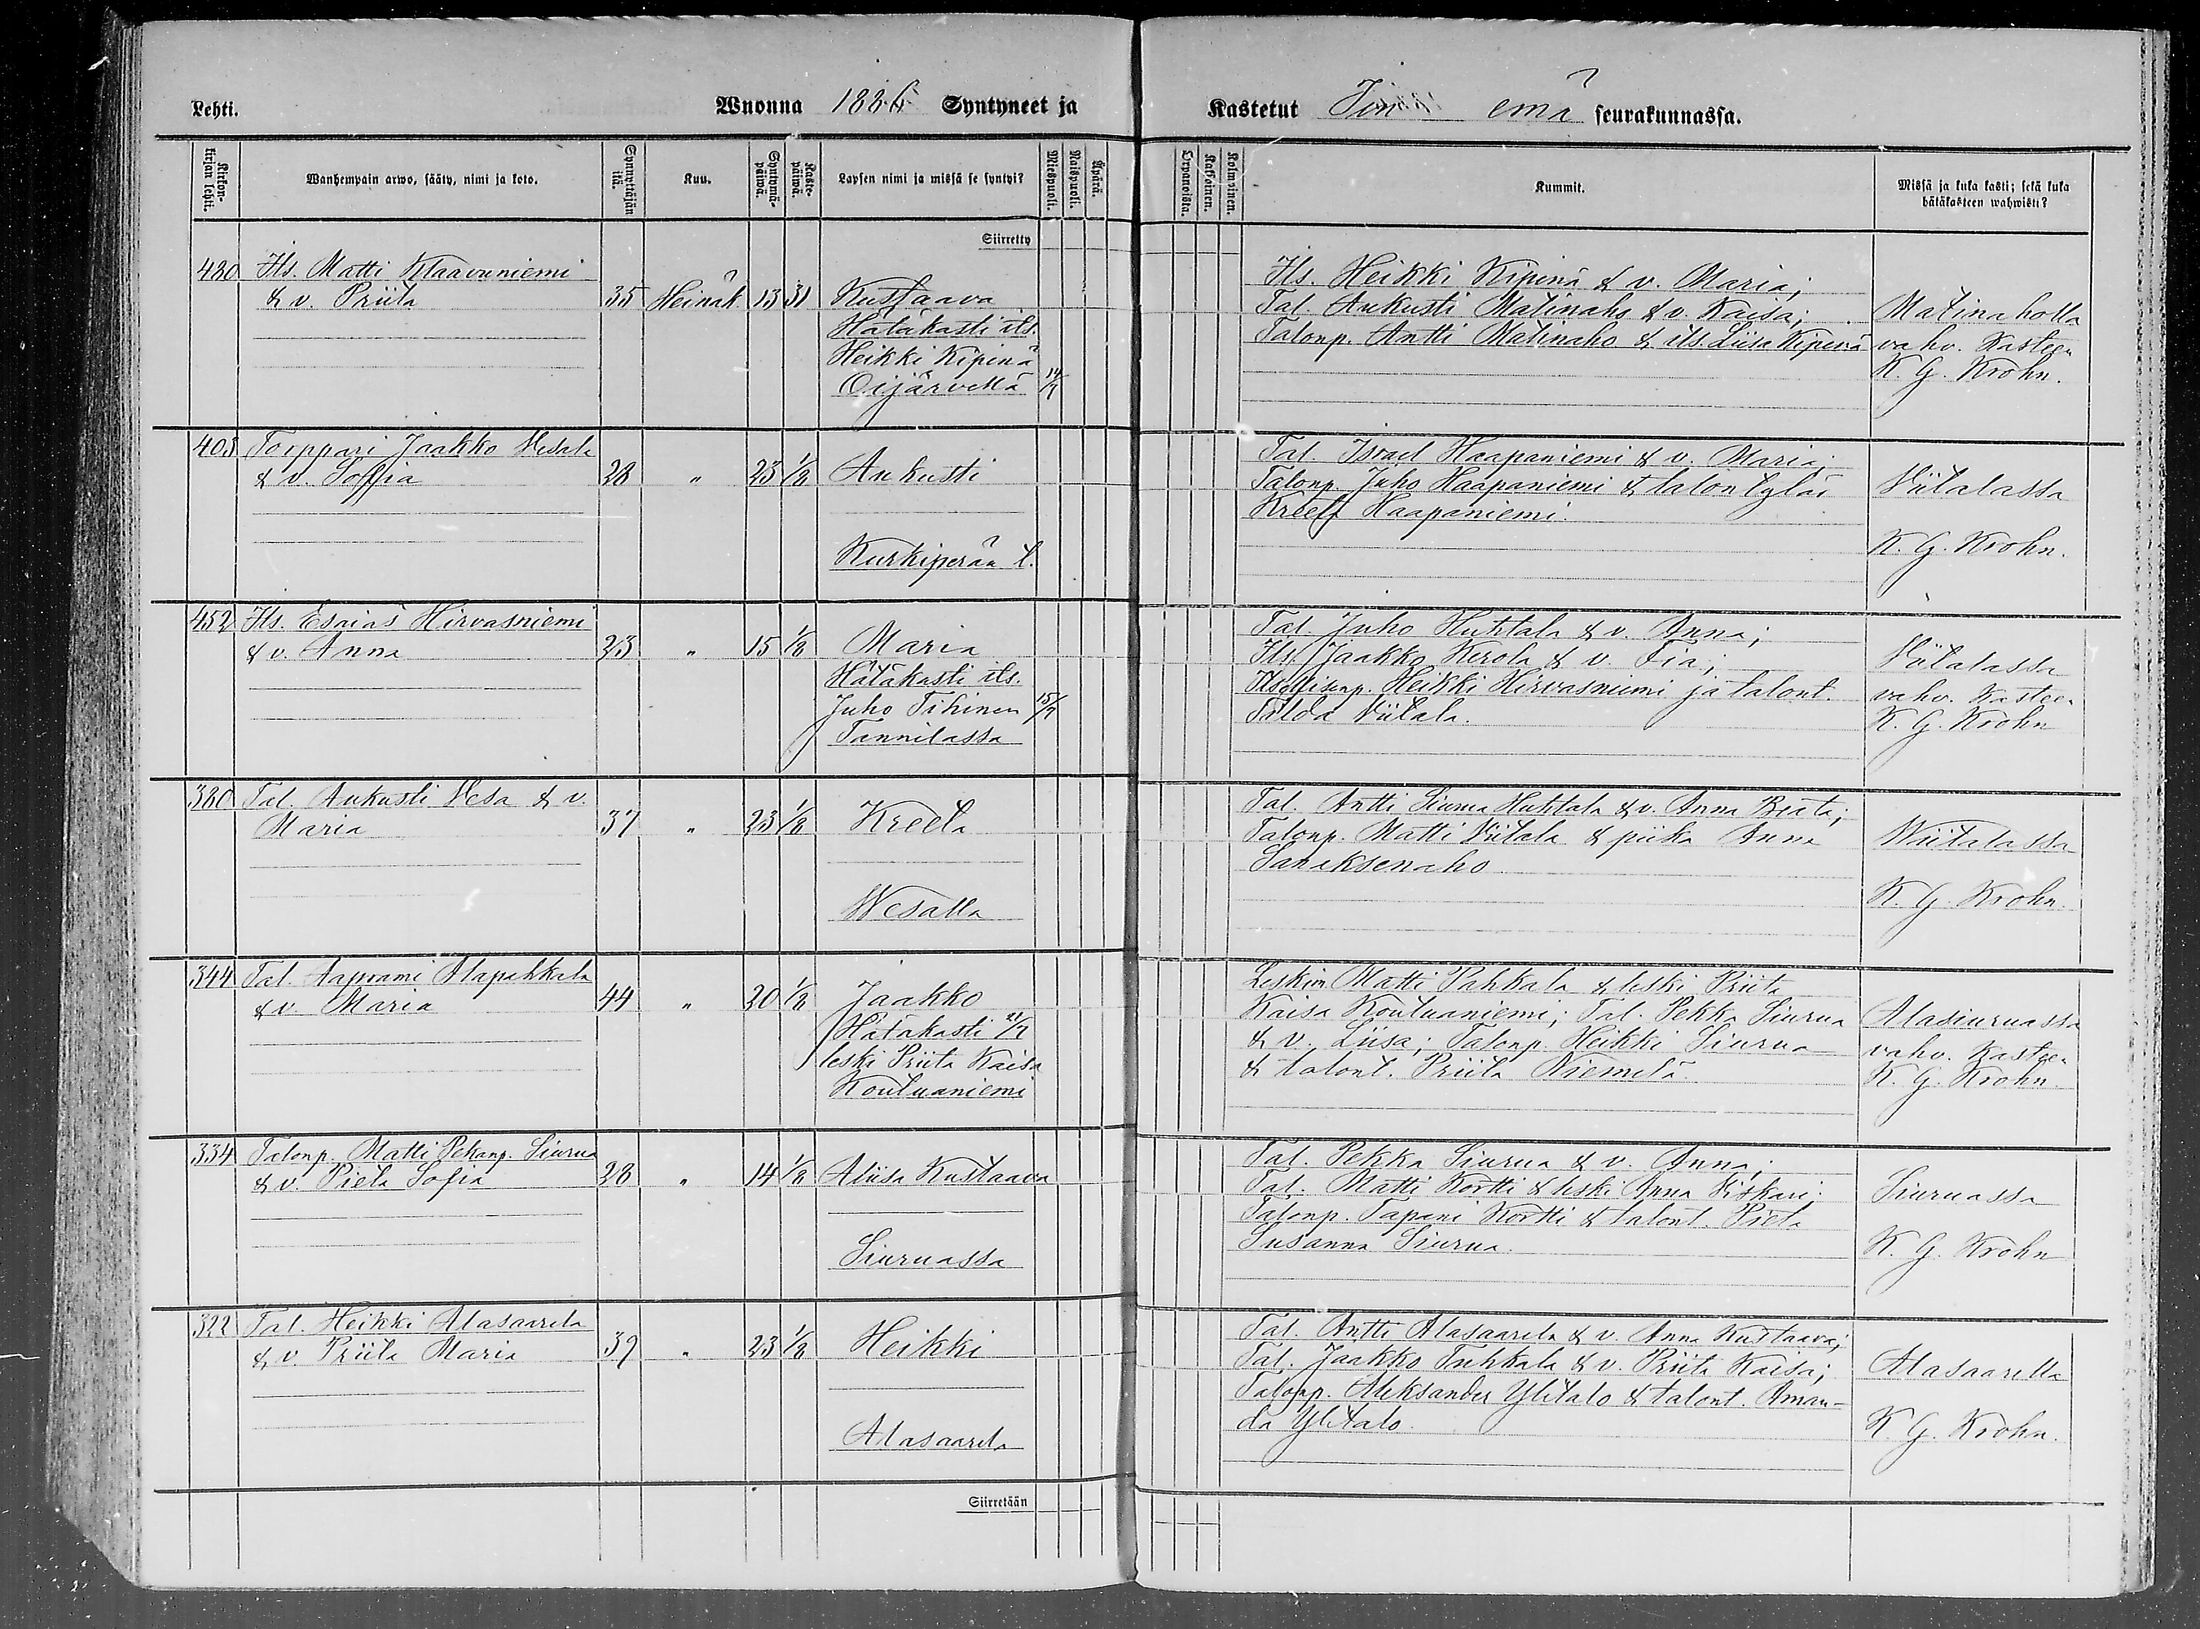 Lehti.
Wuonna 1886 Syntyneet ja
Kastetut Iin emä seurakunnassa.
Kirkon-
kirjan lehti.
Wanhempain arwo, sääty, nimi ja koto.
Synnyttäjän
ikä.
Kuu.
Syntymä-
päiwä.
Kaste-
päiwä.
Lapsen nimi ja missä se syntyi?
Miespuoli.
Naispuoli.
Äpärä.
Orpanoista.
Kaksoinen.
Kolmoinen.
Kummit.
Missä ja kuka kasti; sekä kuka
hätäkasteen wahwisti?
Siirretty
480 Its. Matti Klaavuniemi
& v. Priita 35 Heinäk. 13 31 Kustaava
Hätäkasti its.
Heikki Kipinä
Oijärvellä 14/7
Its. Heikki Kipinä & v. Maria;
Tal. Aukusti Matinaho & v. Kaisa;
Talonp. Antti Matinaho & its. Liisa Kipinä
Matinaholla
vahv. Kasteen
K. G. Krohn.
403 Torppari Jaakko Vesala
& v. Sofia 28 " 23 1/8 Aukusti
Kurkiperän t.
Tal. Israel Haapaniemi & v. Maria;
Talonp. Juho Haapaniemi & talontytär
Kreeta Haapaniemi.
Viitalassa
K. G. Krohn.
452 Its. Esaias Hirvasniemi
& v. Anna 23 " 15 1/8 Maria
Hätäkasti its.
Juho Tihinen 15/7
Tannilassa
Tal. Juho Huhtala & v. Anna;
Its. Jaakko Kerola & v. Fia;
Itsellisenp. Heikki Hirvasniemi ja talont.
Tilda Viitala.
Viitalassa
vahv. Kasteen
K. G. Krohn
380 Tal. Aukusti Vesa & v.
Maria 37 " 23 1/8 Kreeta
Wesalla
Tal. Antti Siurua Huhtala & v. Anna Beata;
Talonp. Matti Viitala & piika Anna
Saraksenaho
Wiitalassa
K. G. Krohn.
344 Tal. Aaprami Alapahkala
& v. Maria 44 " 20 1/8 Jaakko
Hätäkasti 21/7
leski Priita Kaisa
Koutuaniemi
Leskim. Matti Pahkala & leski Priita
Kaisa Koutuaniemi; Tal. Pekka Siurua
& v. Liisa; Talonp. Heikki Siurua
& talont. Priita Niemelä
Alasiuruassa
vahv. Kasteen
K. G. Krohn.
334 Talonp. Matti Pekanp. Siurua
& v. Pieta Sofia 28 " 14 1/8 Aliisa Kustaava
Siuruassa
Tal. Pekka Siurua & v. Anna;
Tal. Matti Kortti & leski Anna Kiskari;
Talonp. Tapani Kortti & talont. Pieta
Susanna Siurua.
Siuruassa
K. G. Krohn
322 Tal. Heikki Alasaarela
& v. Priita Maria 39 " 23 1/8 Heikki
Alasaarela
Tal. Antti Alasaarela & v. Anna Kustaava;
Tal. Jaakko Tuhkala & v. Priita Kaisa;
Talonp. Aleksander Ylitalo & talont. Aman-
da Ylitalo.
Alasaarella
K. G. Krohn.
Siirretään